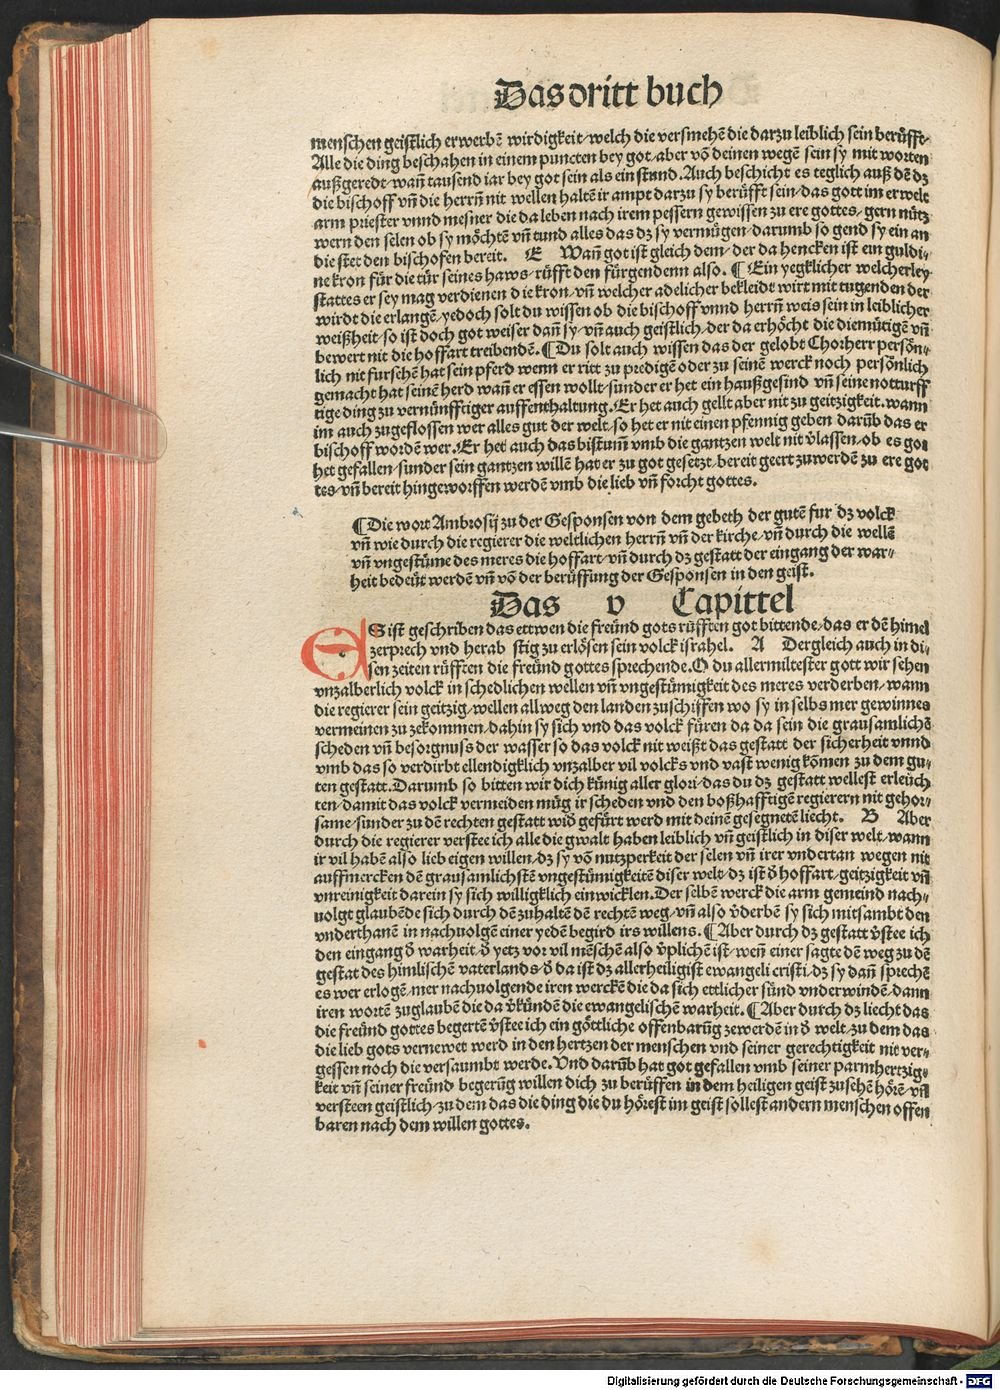 Das dritt buch
menschen geistlich erwerbē wirdigkeit/welch die versmehē die darzu leiblich sein berůfft.
Alle die ding beschahen in einem puncten bey got/aber vō deinen wegē sein sy mit worten
außgeredt/wañ tausend iar bey got sein als ein stund. Auch beschicht es teglich auß dē dz
die bischoff vñ die herrñ nit wellen haltē ir ampt darzu sy berüfft sein/das gott im erwelt
arm priester vnnd mesner die da leben nach irem pessern gewissen zu ere gottes/gern nütz
wern den selen ob sy möchtē vñ tund alles das dz sy vermügen/darumb so gend sy ein an
die stet den bischofen bereit. E Wañ got ist gleich dem/der da hencken ist ein guldi⸗
ne kron für die tür seines haws/rüfft den fürgendenn also. ¶ Ein yegklicher welcherley
stattes er sey mag verdienen die kron/vñ welcher adelicher bekleidt wirt mit tugenden der
wirdt die erlangē/yedoch solt du wissen ob die bischoff vnnd herrñ weis sein in leiblicher
weißheit/so ist doch got weiser dañ sy/vñ auch geistlich/der da erhöcht die diemütigen vñ
bewert nit die hoffart treibendē. ¶ Du solt auch wissen das der gelobt Chorherr persön⸗
lich nit fursehē hat sein pferd wenn er ritt zu predigē oder zu seinē werck noch persönlich
gemacht hat seinē herd wañ er essen wollt/sunder er het ein haußgesind vñ seine notturff
tige ding zu vernünfftiger auffenthaltung. Er het auch gellt aber nit zu geitzigkeit. wann
im auch zugeflossen wer alles gut der welt/so het er nit einen pfennig geben darūb das er
bischoff wordē wer. Er het auch das bistumm vmb die gantzen welt nit v̄lassen/ob es got
het gefallen/sunder sein gantzen willē hat er zu got gesetzt/bereit geert zuwerdē zu ere got
tes/vñ bereit hingeworffen werdē vmb die lieb vñ forcht gottes.
¶ Die wort Ambrosij zu der Gesponsen von dem gebeth der gutē fur dz volck
vñ wie durch die regierer die weltlichen herrñ vñ der kirche/vñ durch die wellē
vñ vngestüme des meres die hoffart/vñ durch dz gestatt der eingang der war⸗
heit bedeüt werdē vñ vō der berüffung der Gesponsen in den geist.
Das v Capittel
ES ist geschriben das ettwen die freünd gots rüfften got bittende/das er dē himel
zerprech vnd herab stig zu erlösen sein volck israhel. A Dergleich auch in di⸗
sen zeiten rüfften die freünd gottes sprechende. O du allermiltester gott wir sehen
vnzalberlich volck in schedlichen wellen vñ vngestümigkeit des meres verderben/wann
die regierer sein geitzig/wellen allweg den landen zuschiffen wo sy in selbs mer gewinnes
vermeinen zu zekommen/dahin sy sich vnd das volck füren da da sein die grausamlichē
scheden vñ besorgnuss der wasser so das volck nit weißt das gestatt der sicherheit vnnd
vmb das so verdirbt ellendigklich vnzalber vil volcks vnd vast wenig kōmen zu dem gu⸗
ten gestatt. Darumb so bitten wir dich künig aller glori/das du dz gestatt wellest erleüch
ten/damit das volck vermeiden müg ir scheden vnd den boßhafftigē regierern nit gehor⸗
same/sunder zu dē rechten gestatt wid̄ gefürt werd mit deinē gesegnetē liecht. B Aber
durch die regierer verstee ich alle die gwalt haben leiblich vñ geistlich in diser welt/wann
ir vil habē also lieb eigen willen/dz sy vō nutzperkeit der selen vñ irer vndertan wegen nit
auffmercken dē grausamlichstē vngestümigkeitē diser welt/dz ist d̄ hoffart/geitzigkeit vñ
vnreinigkeit darein sy sich willigklich einwicklen. Der selbē werck die arm gemeind nach⸗
uolgt glaubēde sich durch dē zuhaltē dē rechtē weg/vñ also v̄derbē sy sich mitsambt den
vnderthanē in nachuolgē einer yedē begird irs willens. ¶ Aber durch dz gestatt v̄stee ich
den eingang d̄ warheit/d̄ yetz vor vil mēschē also v̄plichē ist/weñ einer sagte dē weg zu dē
gestat des himlischē vaterlands/d̄ da ist dz allerheiligist ewangeli cristi/dz sy dañ sprechē
es wer erlogē/mer nachuolgende iren werckē die da sich ettlicher sünd vnderwindē/dann
iren wortē zuglaubē die da v̄kündē die ewangelischē warheit. ¶ Aber durch dz liecht das
die freünd gottes begertē v̄stee ich ein göttliche offenbarūg zewerdē in d̄ welt/zu dem das
die lieb gots vernewet werd in den hertzen der menschen vnd seiner gerechtigkeit nit ver⸗
gessen noch die versaumbt werde. Vnd darūb hat got gefallen vmb seiner parmhertzig⸗
keit vñ seiner freünd begerūg willen dich zu berüffen in dem heiligen geist zusehē hörē/vñ
versteen geistlich/zu dem das die ding die du hörest im geist sollest andern menschen offen
baren nach dem willen gottes.
Digitalisierung gefördert durch die Deutsche Forschungsgemeinschaft - DFG